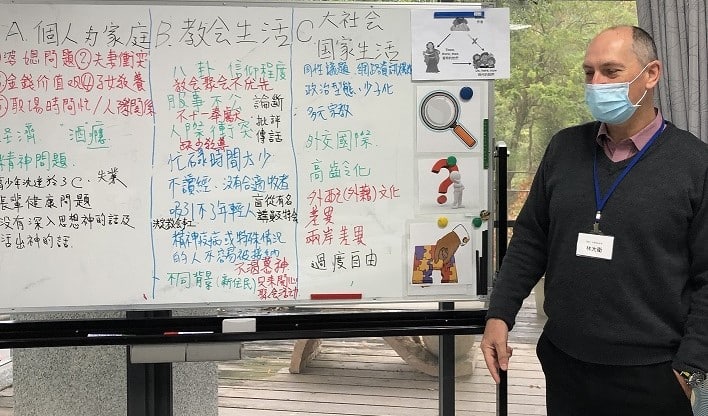 A. 個人为家庭
婆媳問題②夫妻衝突
③金錢价值观④子女教養
⑤取得時間忙/人際関係
經濟 酒癮
精神問題
青少年沈迷於3C、失業
長輩健康問題
沒有深入思想神的話及
活出神的話.
B. 教会生活
八卦 信仰程度
教会聚会不优先
服事不公 論斷
不十一奉獻 批評
人際衝突 傳話
缺少教導
忙碌時間太少
不讀經、沒有合適牧者
吸引不了年輕人 盲從有名講員特会
精神疾病或特殊情況
的人不容易被接納
不渴慕神
不同背景(新住民) 只来関心聚会活动
C 大社会
国家生活
同性議題、網路資訊
政治型態、少子化
多元宗教
外交國際
高齡化
外配(外籍)文化
差異
兩岸差異
過度自由
林大衛